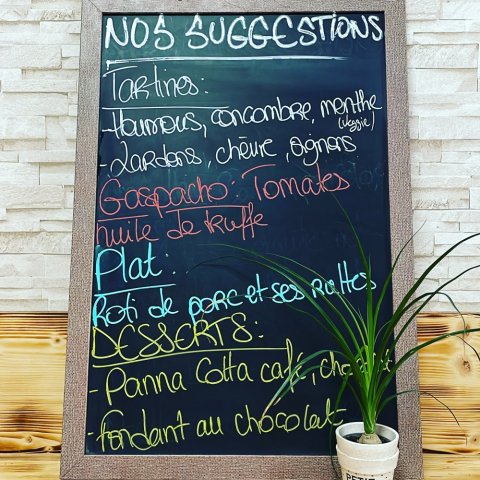 NOS SUGGESTIONS
Tartines:
-Houmous, concombre, menthe
(veggie)
-Lardons, chèvre, oignons
Gaspacho: Tomates
huile de truffe
Plat:
Roti de porc et ses rattes
DESSERTS:
-Panna Cotta café,
-fondant au chocolat
PETIT